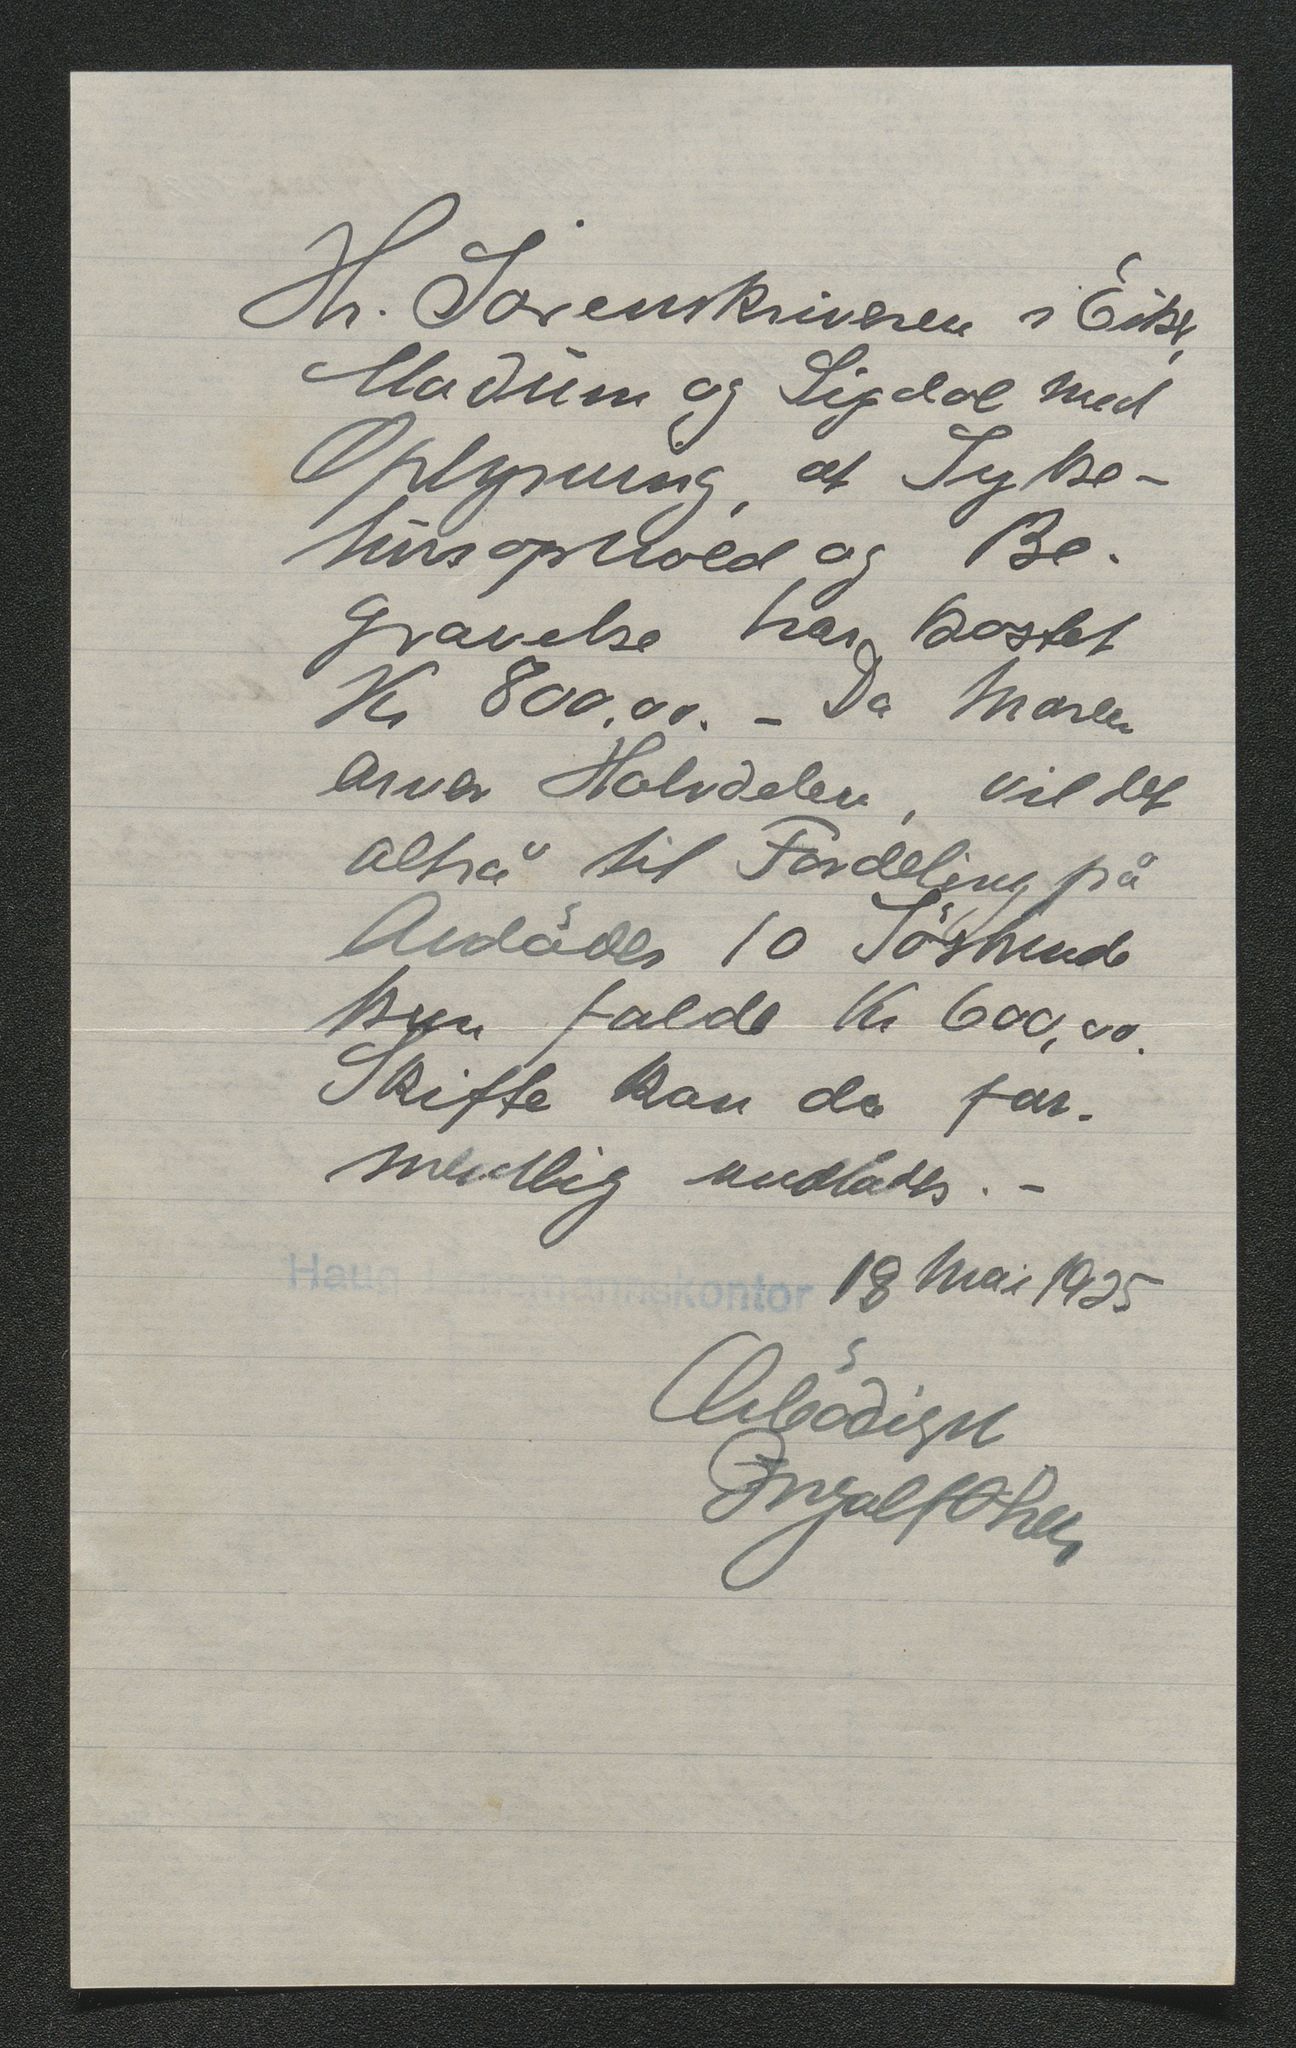 Hr. Sorenskriveren i Eiker,
Modum og Sigdal med
Oplysning, at Syke-
husophold og Be-
gravelse har kostet
Kr 800,00. - Da Moren
arver Halvdelen, vil det
altså til Fordeling på
Avdødes 10 Søskende
kun falde Kr 600,00.
Skifte kan da for-
mentlig undlades. -
Haug lensmannskontor 18 Mai 1925
Ærbødigst
Ingolf Olsen